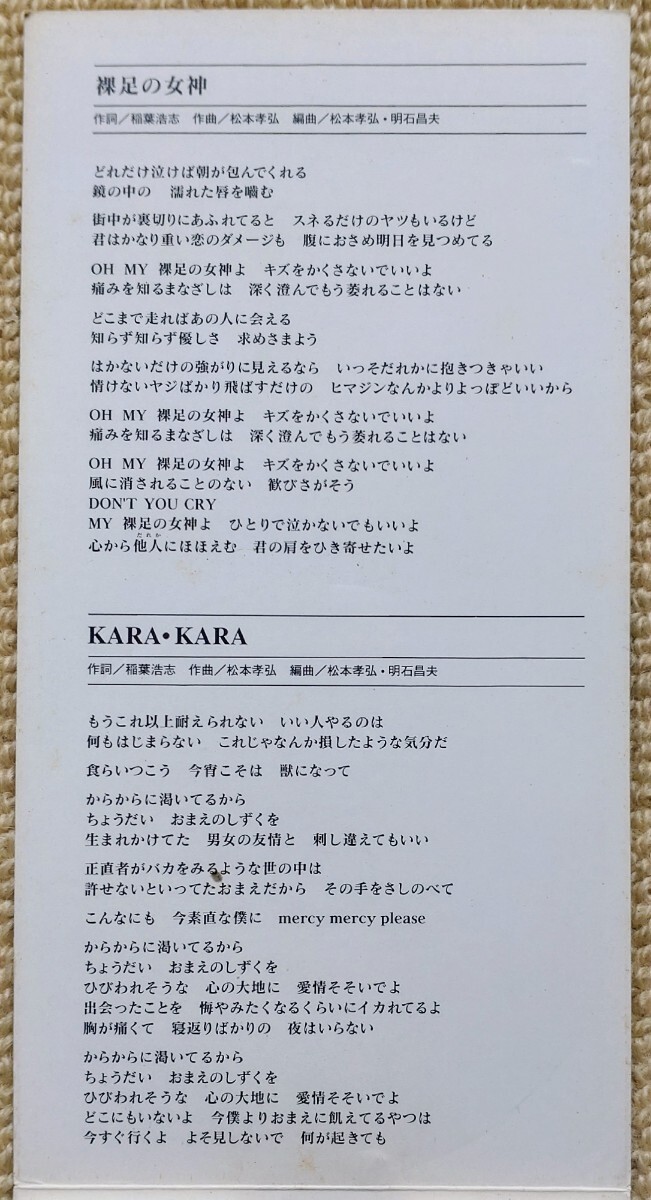 裸足の女神
作詞／稲葉浩志　作曲／松本孝弘　編曲／松本孝弘・明石昌夫
どれだけ泣けば朝が包んでくれる
鏡の中の　濡れた唇を嚙む
街中が裏切りにあふれてると　スネるだけのヤツもいるけど
君はかなり重い恋のダメージも　腹におさめ明日を見つめてる
OH MY 裸足の女神よ　キズをかくさないでいいよ
痛みを知るまなざしは　深く澄んでもう萎れることはない
どこまで走ればあの人に会える
知らず知らず優しさ　求めさまよう
はかないだけの強がりに見えるなら　いっそだれかに抱きつきゃいい
情けないヤジばかり飛ばすだけの　ヒマジンなんかよりよっぽどいいから
OH MY 裸足の女神よ　キズをかくさないでいいよ
痛みを知るまなざしは　深く澄んでもう萎れることはない
OH MY 裸足の女神よ　キズをかくさないでいいよ
風に消されることのない　歓びさがそう
DON'T YOU CRY
MY 裸足の女神よ　ひとりで泣かないでもいいよ
だれか
心から他人にほほえむ　君の肩をひき寄せたいよ
KARA・KARA
作詞／稲葉浩志　作曲／松本孝弘　編曲／松本孝弘・明石昌夫
もうこれ以上耐えられない　いい人やるのは
何もはじまらない　これじゃなんか損したような気分だ
食らいつこう　今宵こそは　獣になって
からからに渇いてるから
ちょうだい　おまえのしずくを
生まれかけてた　男女の友情と　刺し違えてもいい
正直者がバカをみるような世の中は
許せないといってたおまえだから　その手をさしのべて
こんなにも　今素直な僕に　mercy mercy please
からからに渇いてるから
ちょうだい　おまえのしずくを
ひびわれそうな　心の大地に　愛情そそいでよ
出会ったことを　悔やみたくなるくらいにイカれてるよ
胸が痛くて　寝返りばかりの　夜はいらない
からからに渇いてるから
ちょうだい　おまえのしずくを
ひびわれそうな　心の大地に　愛情そそいでよ
どこにもいないよ　今僕よりおまえに飢えてるやつは
今すぐ行くよ　よそ見しないで　何が起きても